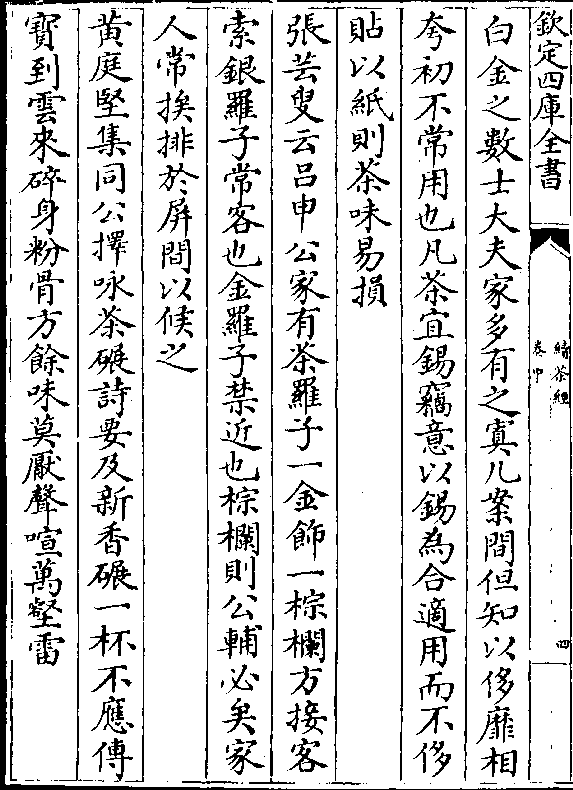 欽定四庫全書
續茶經
卷中
四
白金之數士大夫家多有之寘几案間但知以侈靡相
夸初不常用也凡茶宜錫竊意以錫為合適用而不侈
貼以紙則茶味易損
張芸叟云呂申公家有茶羅子一金飾一棕欄方接客
索銀羅子常客也金羅子禁近也棕欄則公輔必矣家
人常挨排於屏間以候之
黃庭堅集同公擇咏茶碾詩要及新香碾一杯不應傳
寳到雲來碎身粉骨方餘味莫厭聲喧萬壑雷